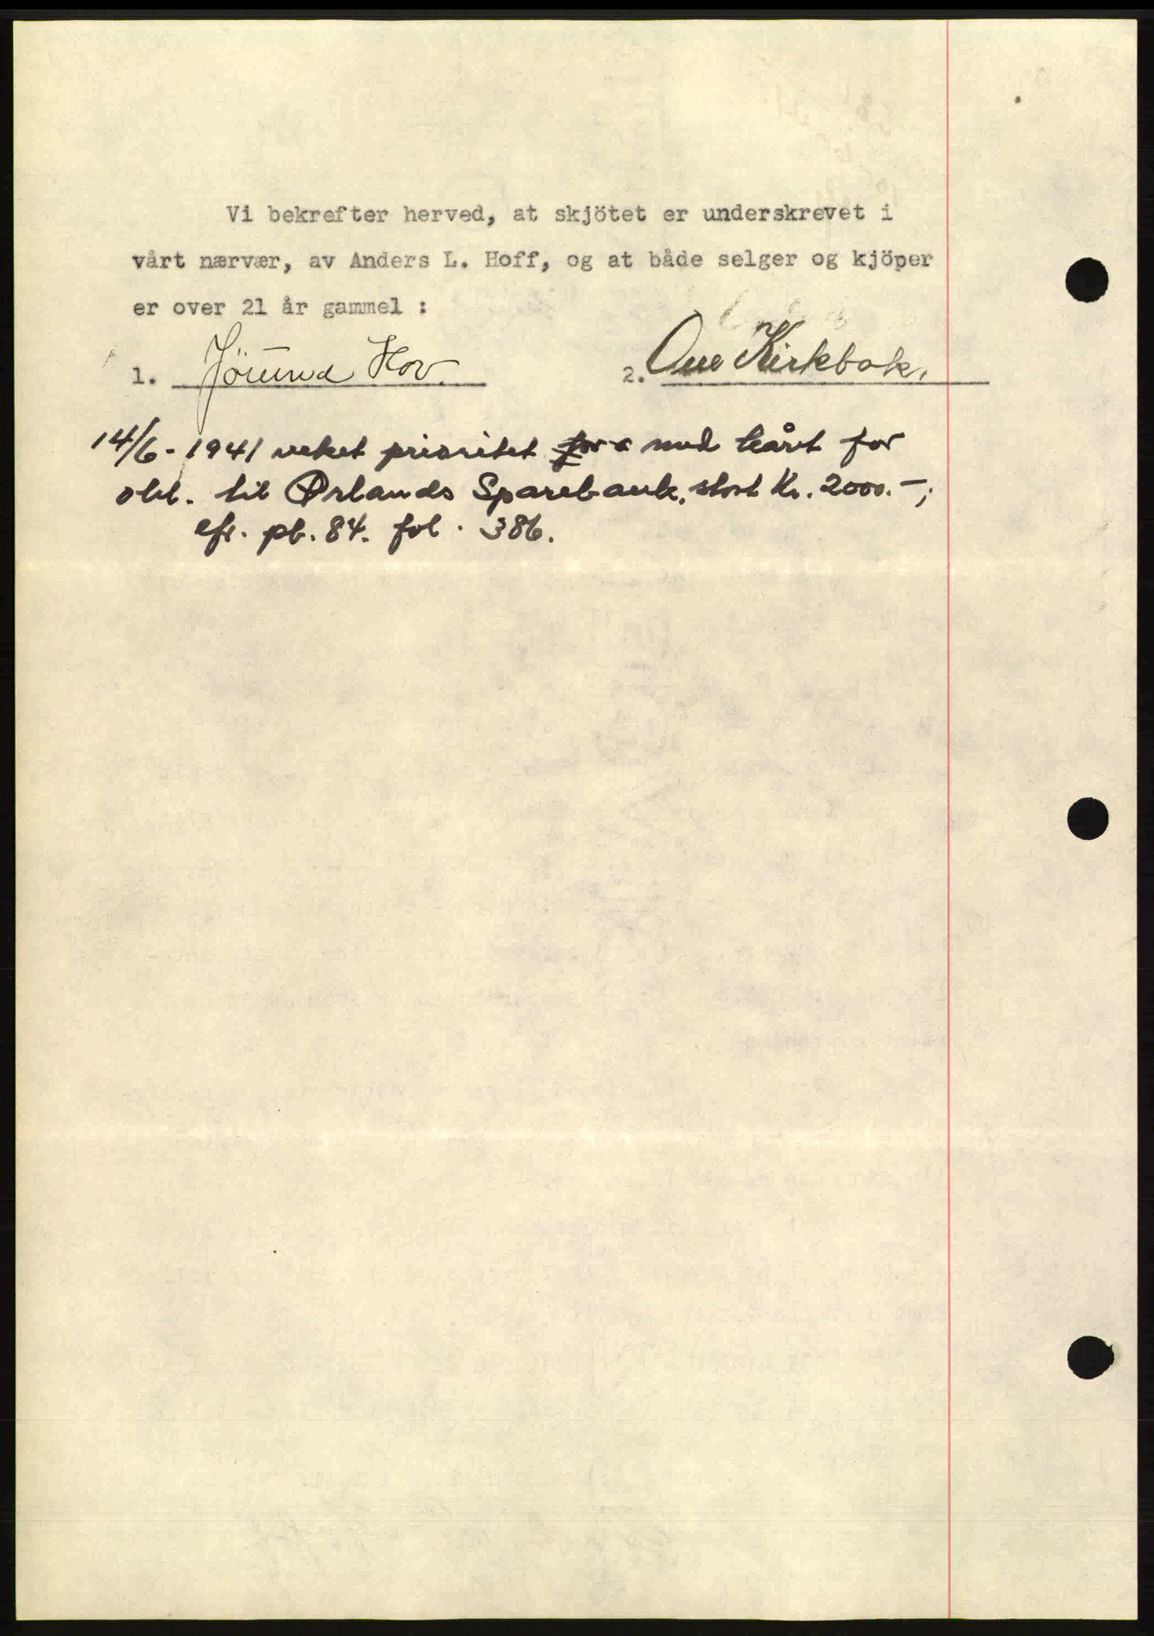 Vi bekrefter herved, at skjötet er underskrevet i
vårt nærvær, av Anders L. Hoff, og at både selger og kjöper
er over 21 år gammel :
1. Jörund Hov. 2. Ove Kirkbak.
14/6- 1941 veket prioritet for med kårt for
obl. til Ørlands Sparebank, stort Kr. 2000.-;
cfr. pb. 84. fol. 386.